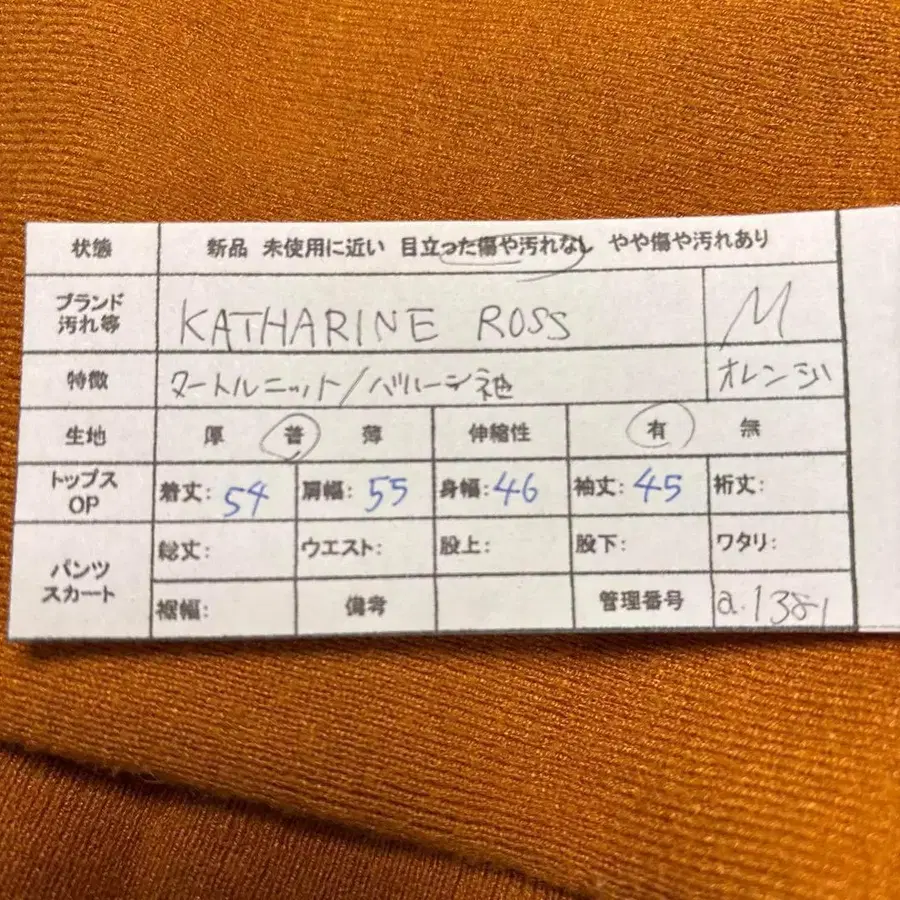 状態 新品 未使用に近い 目立った傷や汚れなし やや傷や汚れあり
ブランド
汚れ等 KATHARINE ROSS M
特徴 タートルニット/バルーン袖 オレンジ
生地 厚 普 薄 伸縮性 有 無
トップス
OP 着丈: 54 肩幅: 55 身幅: 46 袖丈: 45 裄丈:
パンツ
スカート 総丈: ウエスト: 股上: 股下: ワタリ:
裾幅: 備考 管理番号